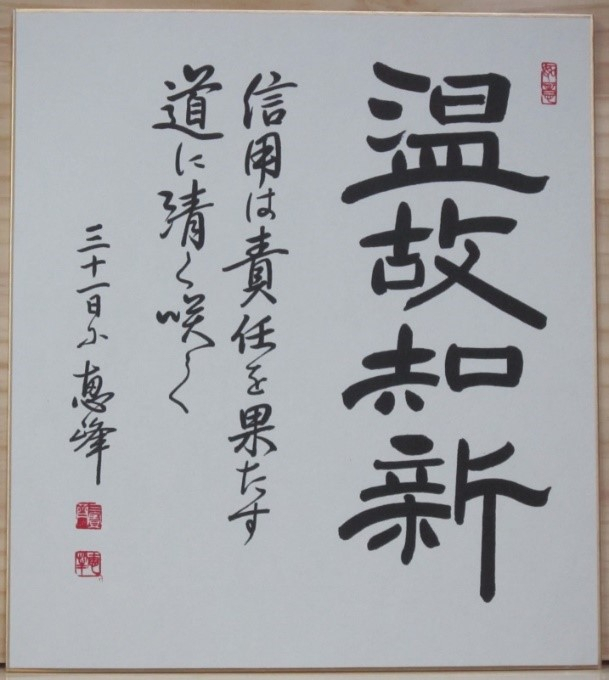 温故知新
信用は責任を果たす
道に清く咲く
三十一日に 恵峰